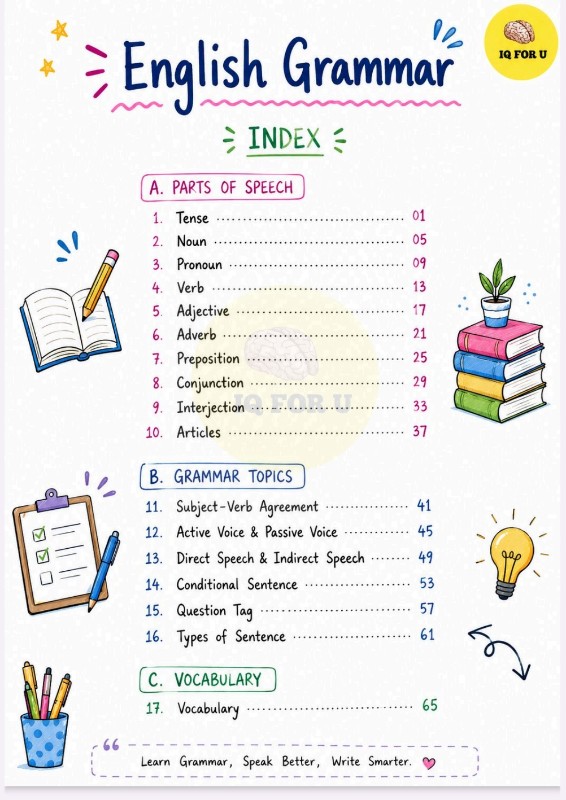 English Grammar
IQ FOR U
INDEX
A. PARTS OF SPEECH
1. Tense 01
2. Noun 05
3. Pronoun 09
4. Verb 13
5. Adjective 17
6. Adverb 21
7. Preposition 25
8. Conjunction 29
9. Interjection 33
IQ FOR U
10. Articles 37
B. GRAMMAR TOPICS
11. Subject-Verb Agreement 41
12. Active Voice & Passive Voice 45
13. Direct Speech & Indirect Speech 49
14. Conditional Sentence 53
15. Question Tag 57
16. Types of Sentence 61
C. VOCABULARY
17. Vocabulary 65
Learn Grammar, Speak Better, Write Smarter.